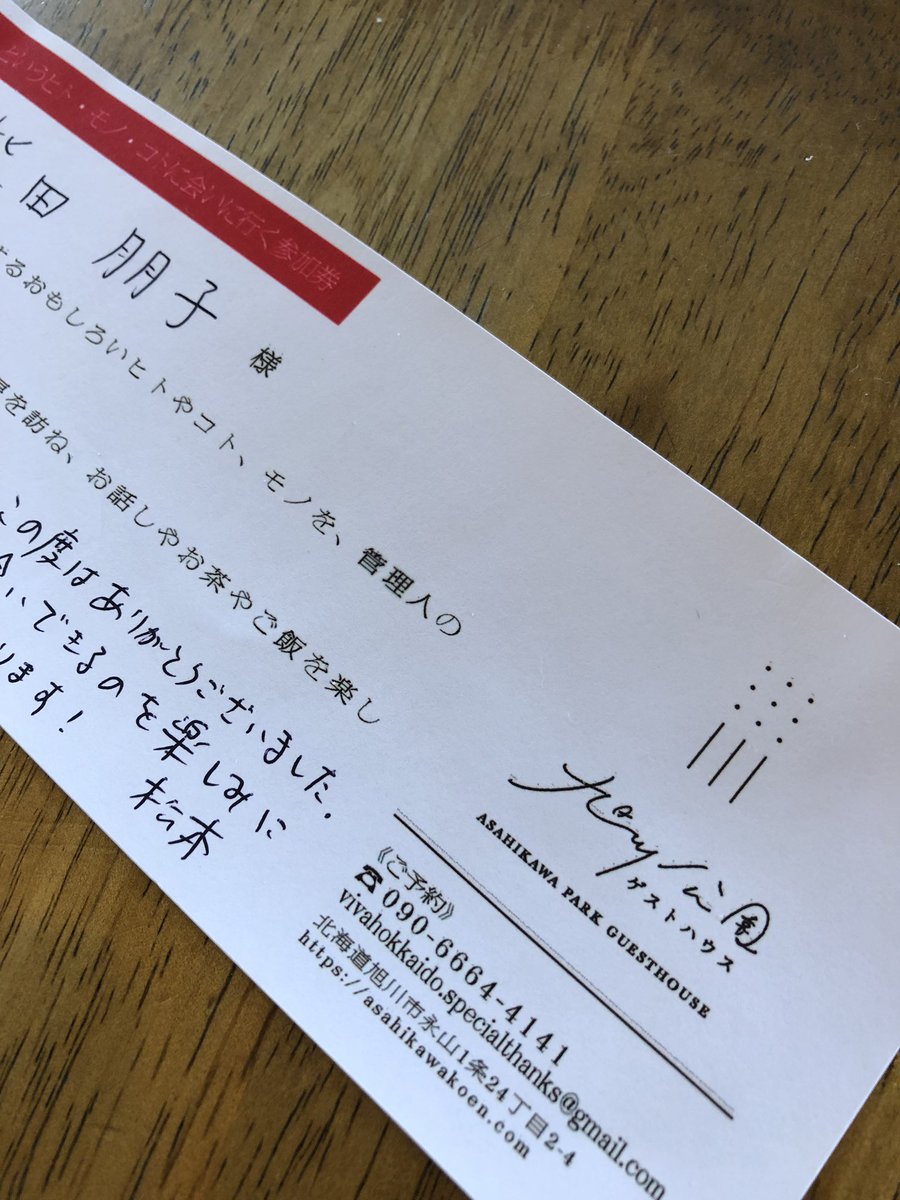 というヒト・モノ・コトに会いに行く参加券
田 朋子 様
するおもしろいヒトやコト、モノを、管理人の
を訪ね、お話しやお茶やご飯を楽し
この度はありがとうございました。
いできるのを楽しみに
ります!
松本
公園
ゲストハウス
ASAHIKAWA PARK GUESTHOUSE
《ご予約》
☎090-6664-4141
vivahokkaido.specialthanks@gmail.com
北海道旭川市永山1条24丁目2-4
https://asahikawakoen.com